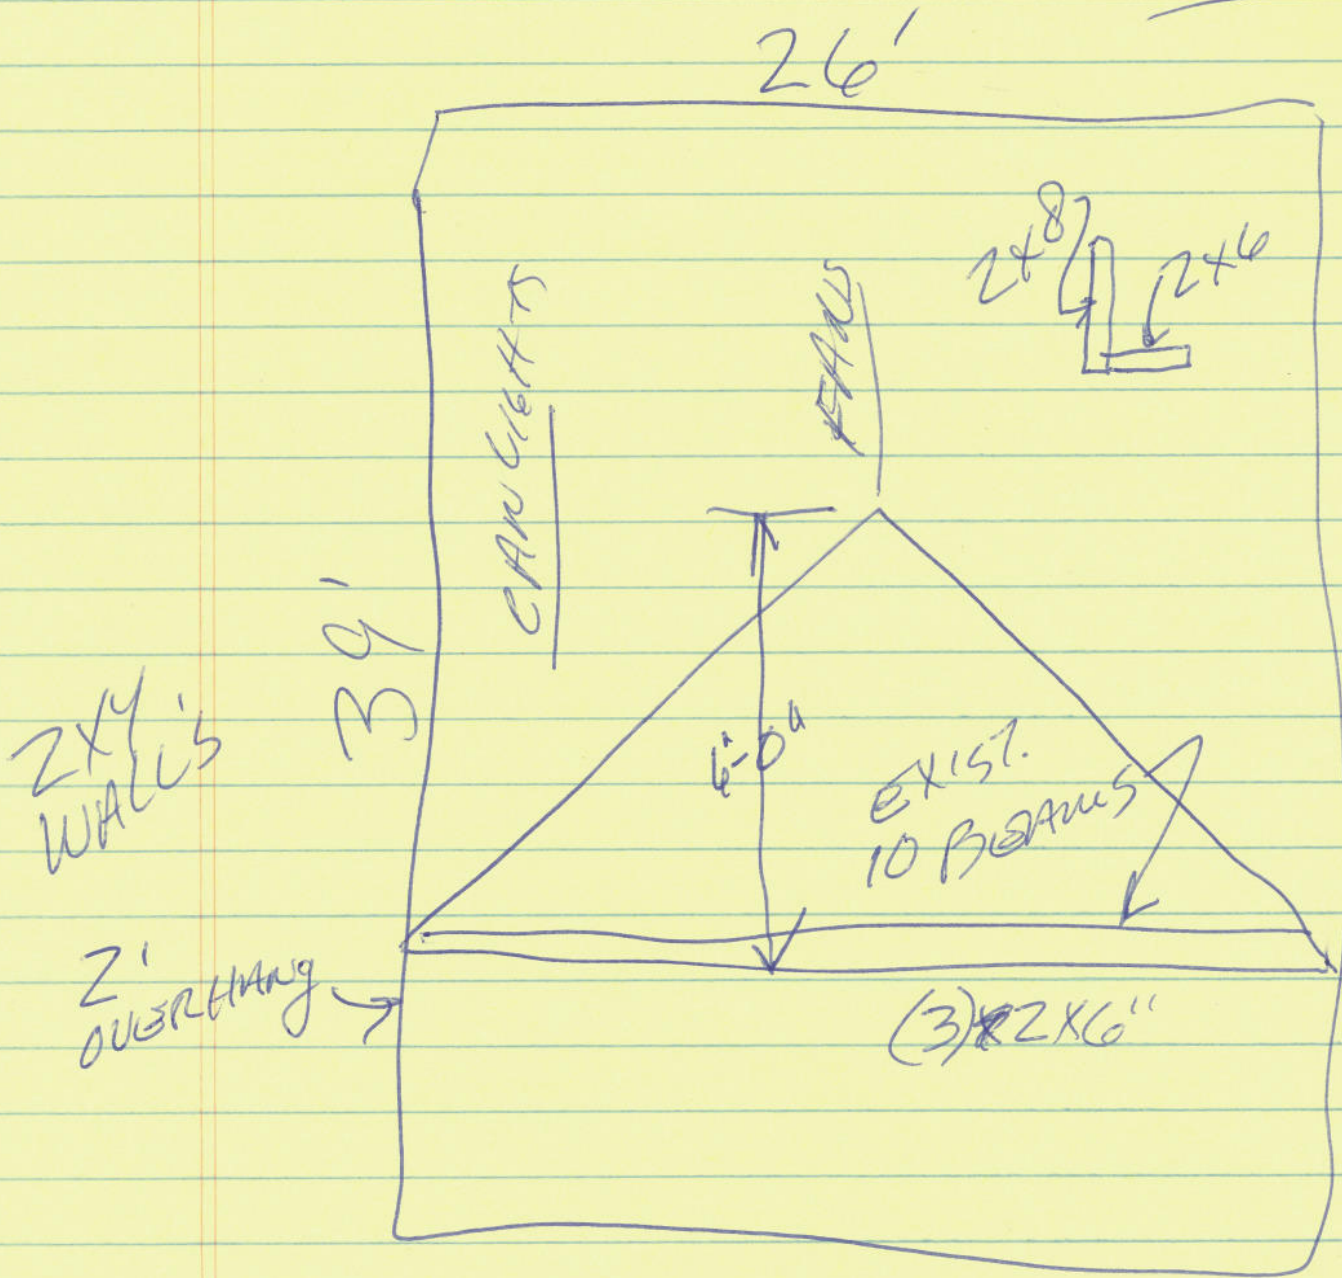 26'
2x8
2x6
CAN LIGHTS
FANS
39'
2x4
WALL'S
6'-0"
EXIST.
10 BEAMS
2'
OVERHANG
(3) 2x6"